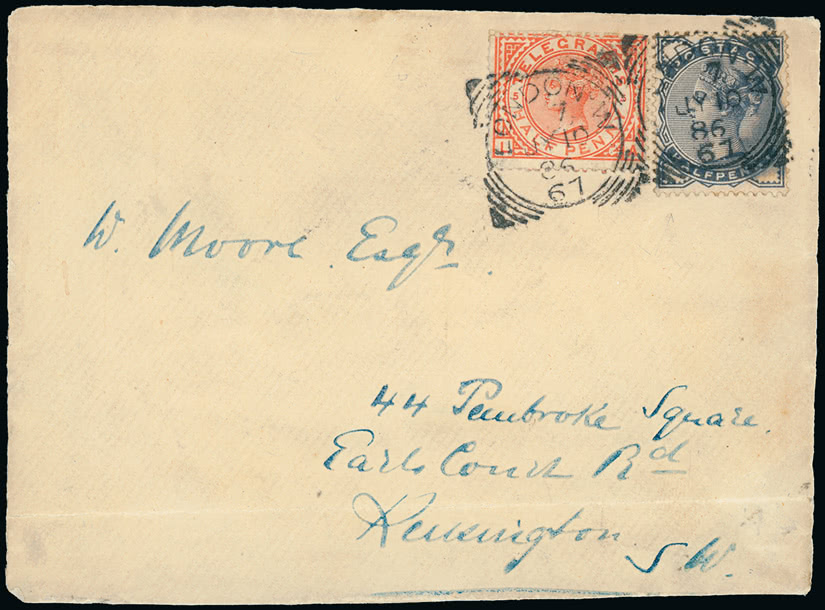 TELEGRAPHS
HALF PENNY
POSTAGE
HALFPENNY
LONDON.W
1
JY 10
86
67
LONDON.W
1
JY 10
86
67
W. Moore Esqr.
44 Pembroke Square.
Earls Court Rd
Kensington
S W.